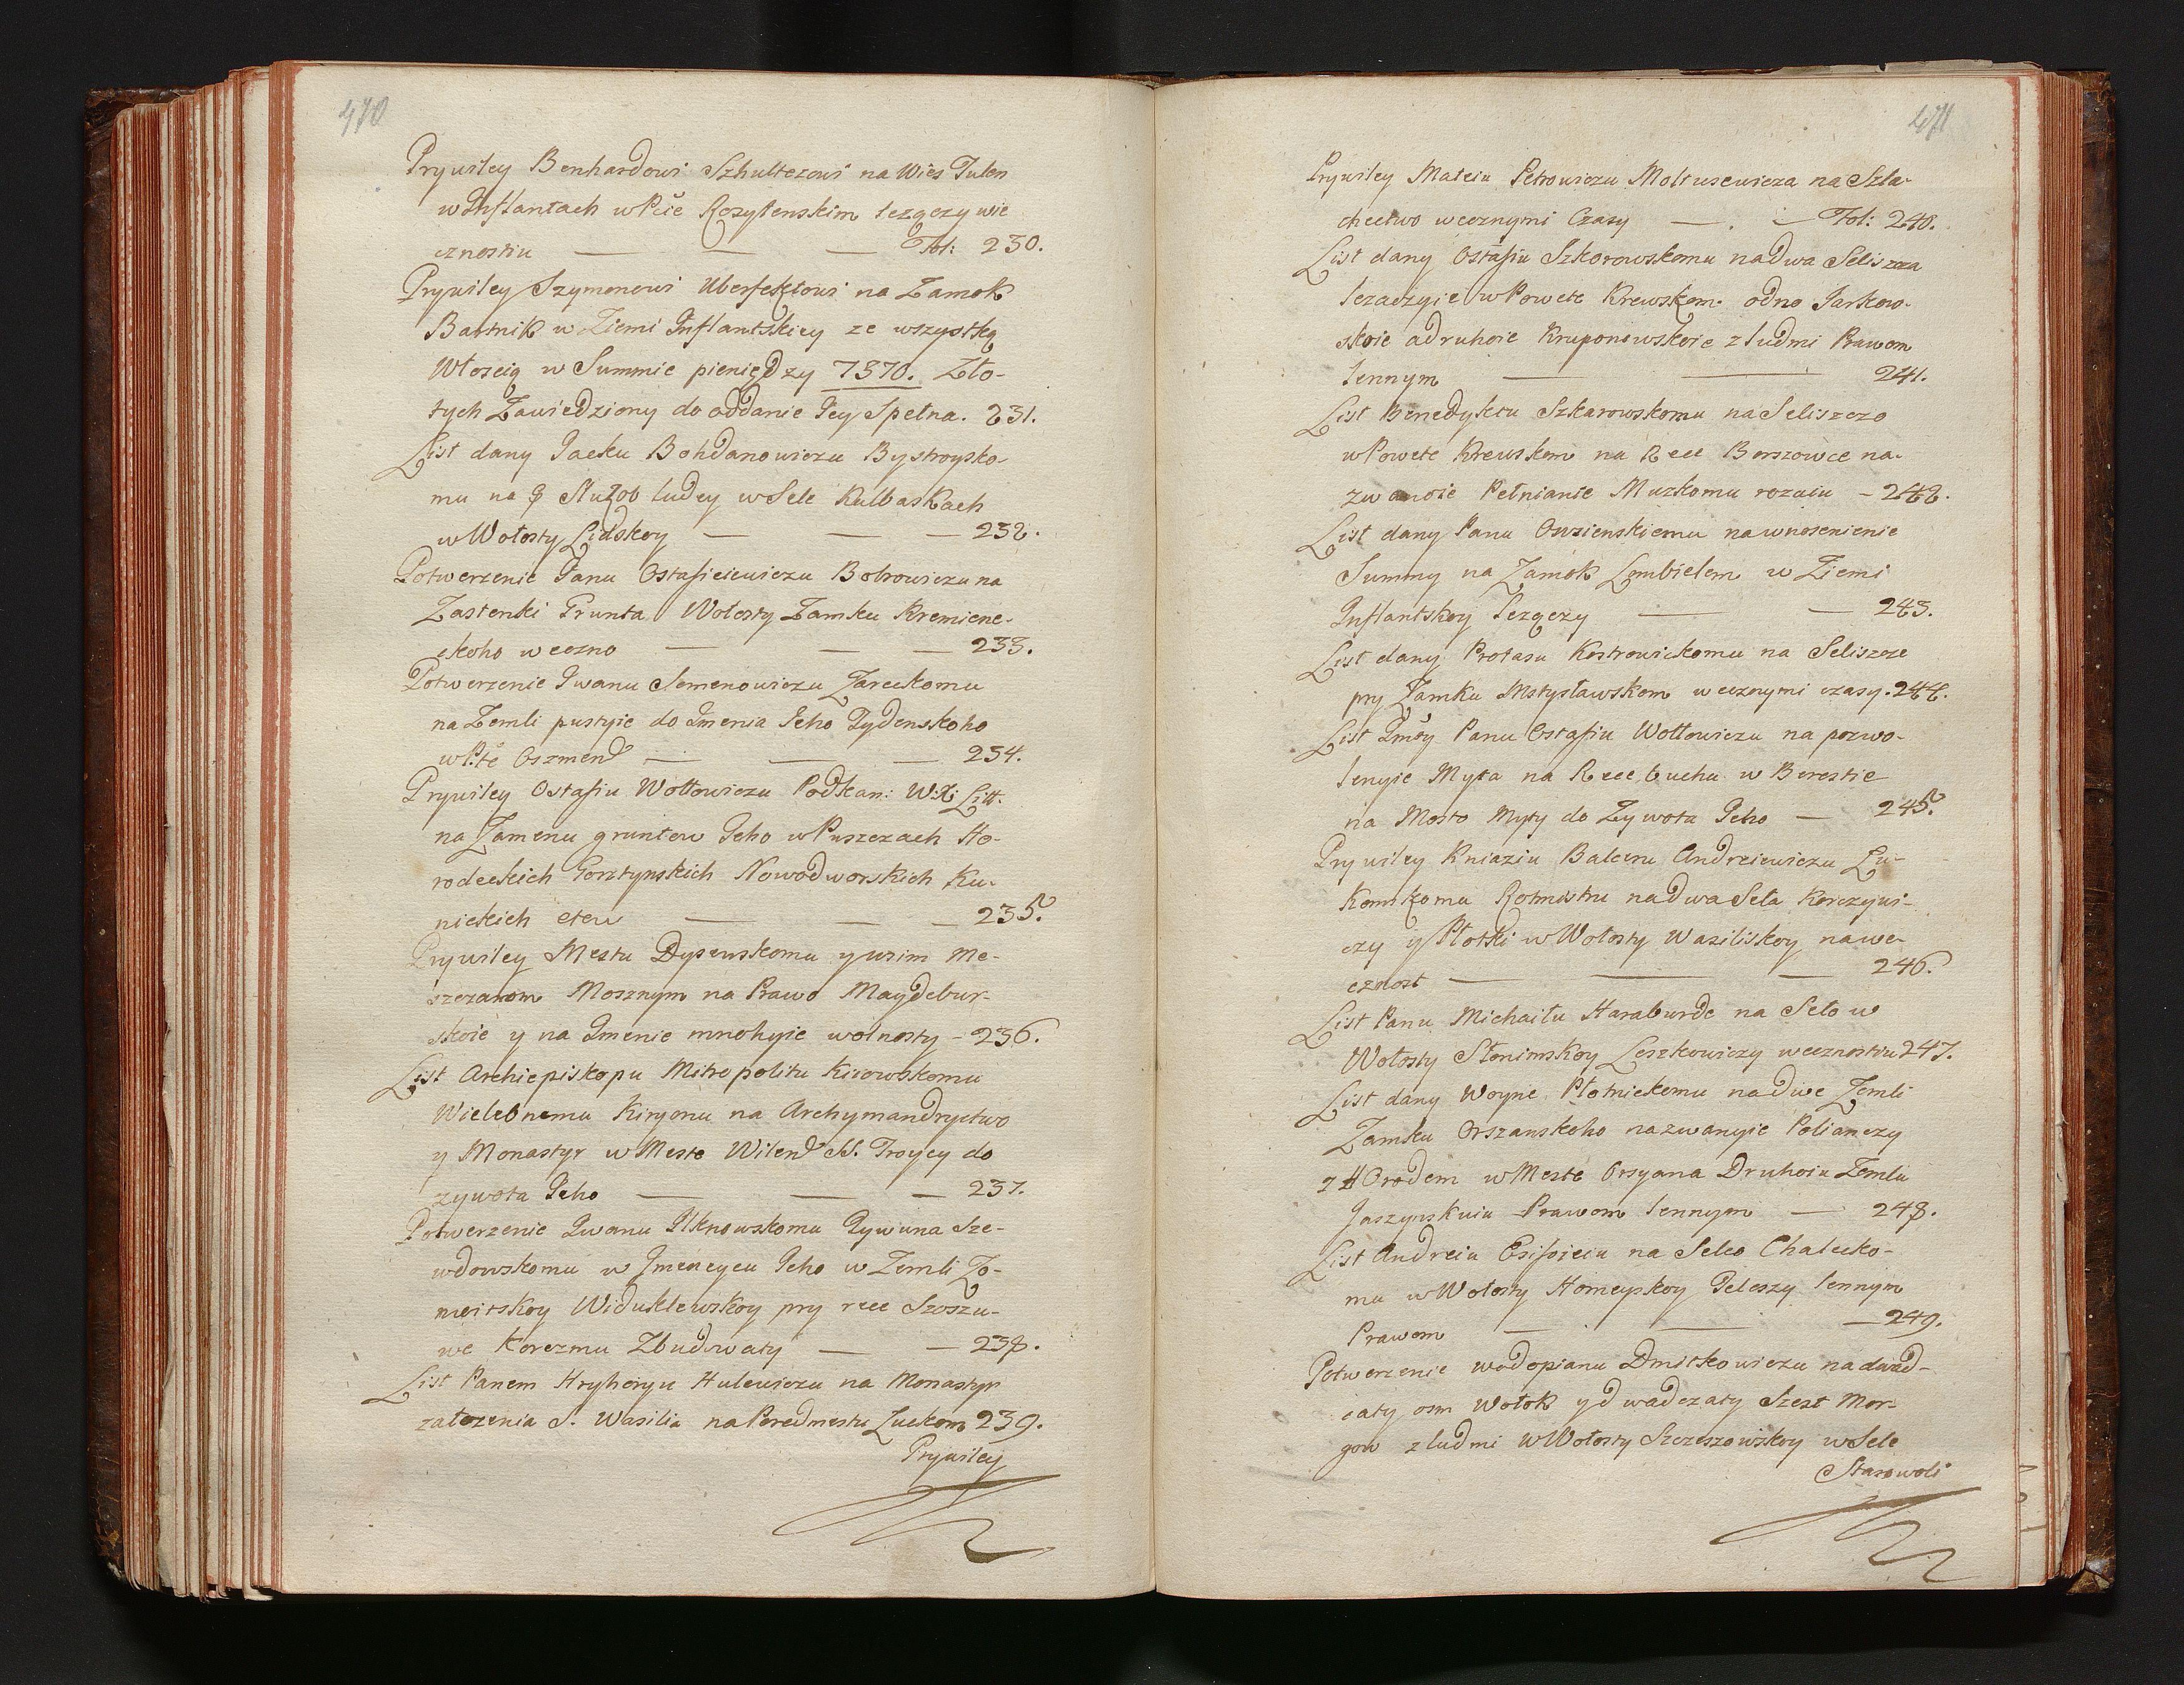 470
Prywiley Benhardowi Szhultezowi na Wies Tulen
w Inflantach w Pcie Rozytenskim lezączy wie
cznostiu — — — Fol: 230.
Prywiley Szymonowi Uberfektowi na Zamok
Bartnik w Ziemi Inflantskiey ze wszystką
Włoscią w Summie pieniędzy 7370. Zło-
tych Zawiedziony do oddanie Jey Spełna. 231.
List dany Jacku Bohdanowiczu Bystroysko-
mu na 8 Służob ludey w Sele Kulbaskach
w Wołosty Lidskoy — — — 232.
Potwerzenie Panu Ostafieiewiczu Bobrowiczu na
Zastenki Grunta Wołosty Zamku Kremiene-
ckoho weczno — — — 233.
Potwerzenie Iwanu Semenowiczu Zareckomu
na Zemli pustyie do Imenia Jeho Gydenskoho
w P:te Oszmend — — — 234.
Prywiley Ostafiu Wołłowiczu Podkan: W:X: Litt.
na Zamenu gruntow Jeho w Puszczach Ho-
rodeckich Gorztynskich Nowodworskich Ku-
nickich etew — — — 235.
Prywiley Mestu Dysenskomu y wsim Me-
szczanom Mosznym na Prawo Maydebur-
skoie y na Imenie mnohyie wolnosty - 236.
List Archiepiskopu Mitropolitu Kiiowskomu
Wielebnemu Kiryonu na Archymandryctwo
y Monastyr w Meste Wilend SS. Troycy do
zywota Jeho — — — 237.
Potwerzenie Iwanu Ilknowskomu Tywuna Sze-
wdowskomu w Imeneycu Jeho w Zemli Zo-
moitskoy Widuklewskoy pry rece Szoszu-
we Korczmu Zbudowaty — — 238.
List Panem Hryhoryu Hulewiczu na Monastyr
załozenia S. Wasilia na Peredmestu Luckom 239.
Prywiley
471
Prywiley Mateiu Petrowiczu Moltusewicza na Szla-
chectwo wecznymi Czasy — . — Fol: 240.
List dany Ostafiu Szkorowskomu na Dwa Seliszcza
lezaczyie w Powete Krewskom odno Jarkow-
skoie a druhoie Kruponowskoie z ludmi Prawom
lennym — — 241.
List Benedyktu Szkarowskomu na Seliszczo
w Powete Krewskom na Rece Borszowce na-
zwanoie Pełnianie Muzkomu rozaiu - 242.
List dany Panu Owsienskiemu na wnosenienie
Summy na Zamok Lembielem w Ziemi
Inflantskoy lezączy — — 243.
List dany Protasu Kostrowickomu na Seliszcze
pry Zamku Mstysławskom wecznymi czasy. 244.
List Imśćy Panu Ostafiu Wołłowiczu na pozwo-
lenyie Myta na Rece Buchu w Berestie
na Mosto Myty do Zywota Jeho — 245.
Prywiley Kniaziu Balceru Andreiewiczu Lu-
komskomu Rotmistru na Dwa Seła Korczyni-
czy y Płotki w Wołosty Wasiliskoy na we-
cznost — — — 246.
List Panu Michaiłu Haraburde na Seło w
Wołosty Słonimskoy Leszkowiczy wecznostiu 247.
List dany Woyne Płotnickomu na dwe Zemli
Zamku Orszanskoho nazwanyie Polianczy
z HOrodem w Meste Orsyana Druhoiu Zemlu
Jaszynskuiu Prawom lennym — 248.
List Andreiu Esifoieiu na Selco Chalecko-
mu w Wołosty Homeyskoy Teleszy lennym
Prawom — — — 249.
Potwerzenie wodopianu Dmitkowiczu na dwad-
caty osm Wołok y dwadczaty Szest Mor-
gow z ludmi w Wołosty Szereszowskoy w Sele
Starowoli